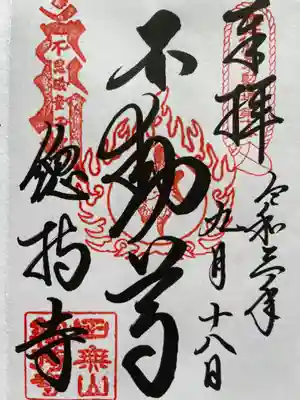 奉拝
令和三年
九月十八日
不動尊
總持寺